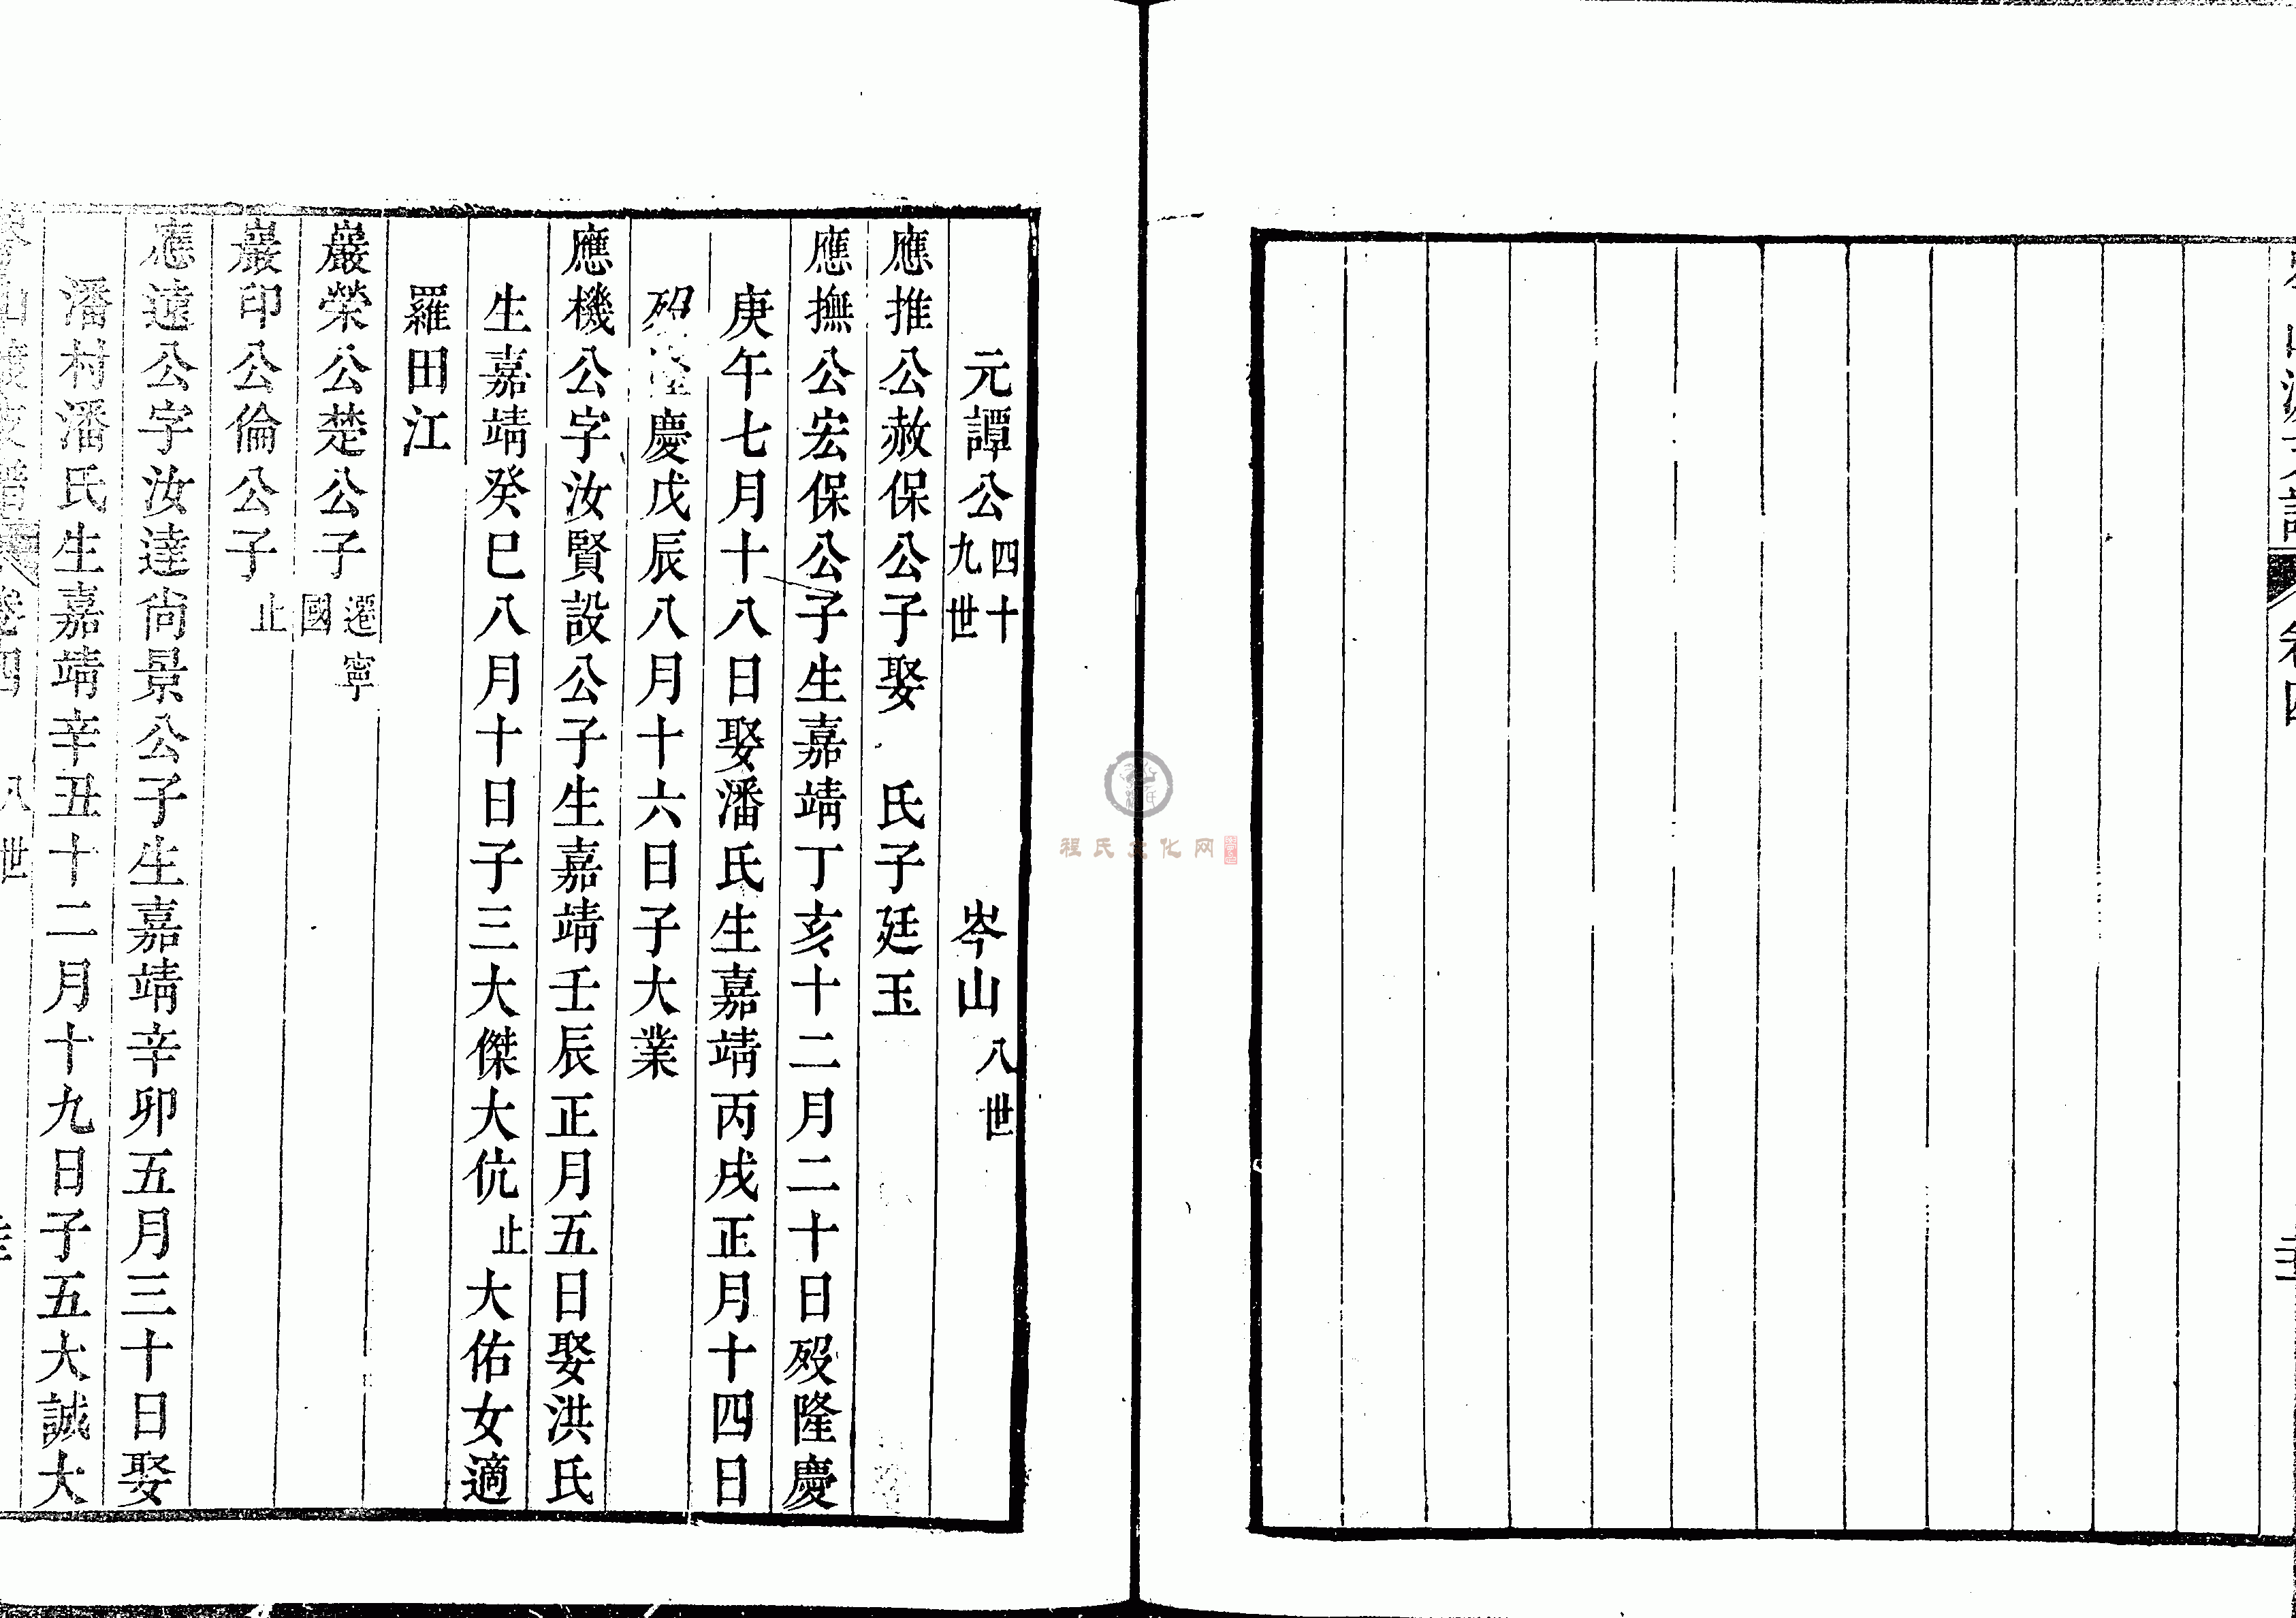 卷四
元譚公四十九世　岑山八世
應推公赦保公子娶　氏子廷玉
應撫公宏保公子生嘉靖丁亥十二月二十日歿隆慶
庚午七月十八日娶潘氏生嘉靖丙戌正月十四日
歿隆慶戊辰八月十六日子大業
應機公字汝賢設公子生嘉靖壬辰正月五日娶洪氏
生嘉靖癸巳八月十日子三大傑大伉止大佑女適
羅田江
巖榮公楚公子遷寧國
巖印公倫公子止
應遠公字汝達尙景公子生嘉靖辛卯五月三十日娶
潘村潘氏生嘉靖辛丑十二月十九日子五大誠大
卷四　八世
程氏文化网